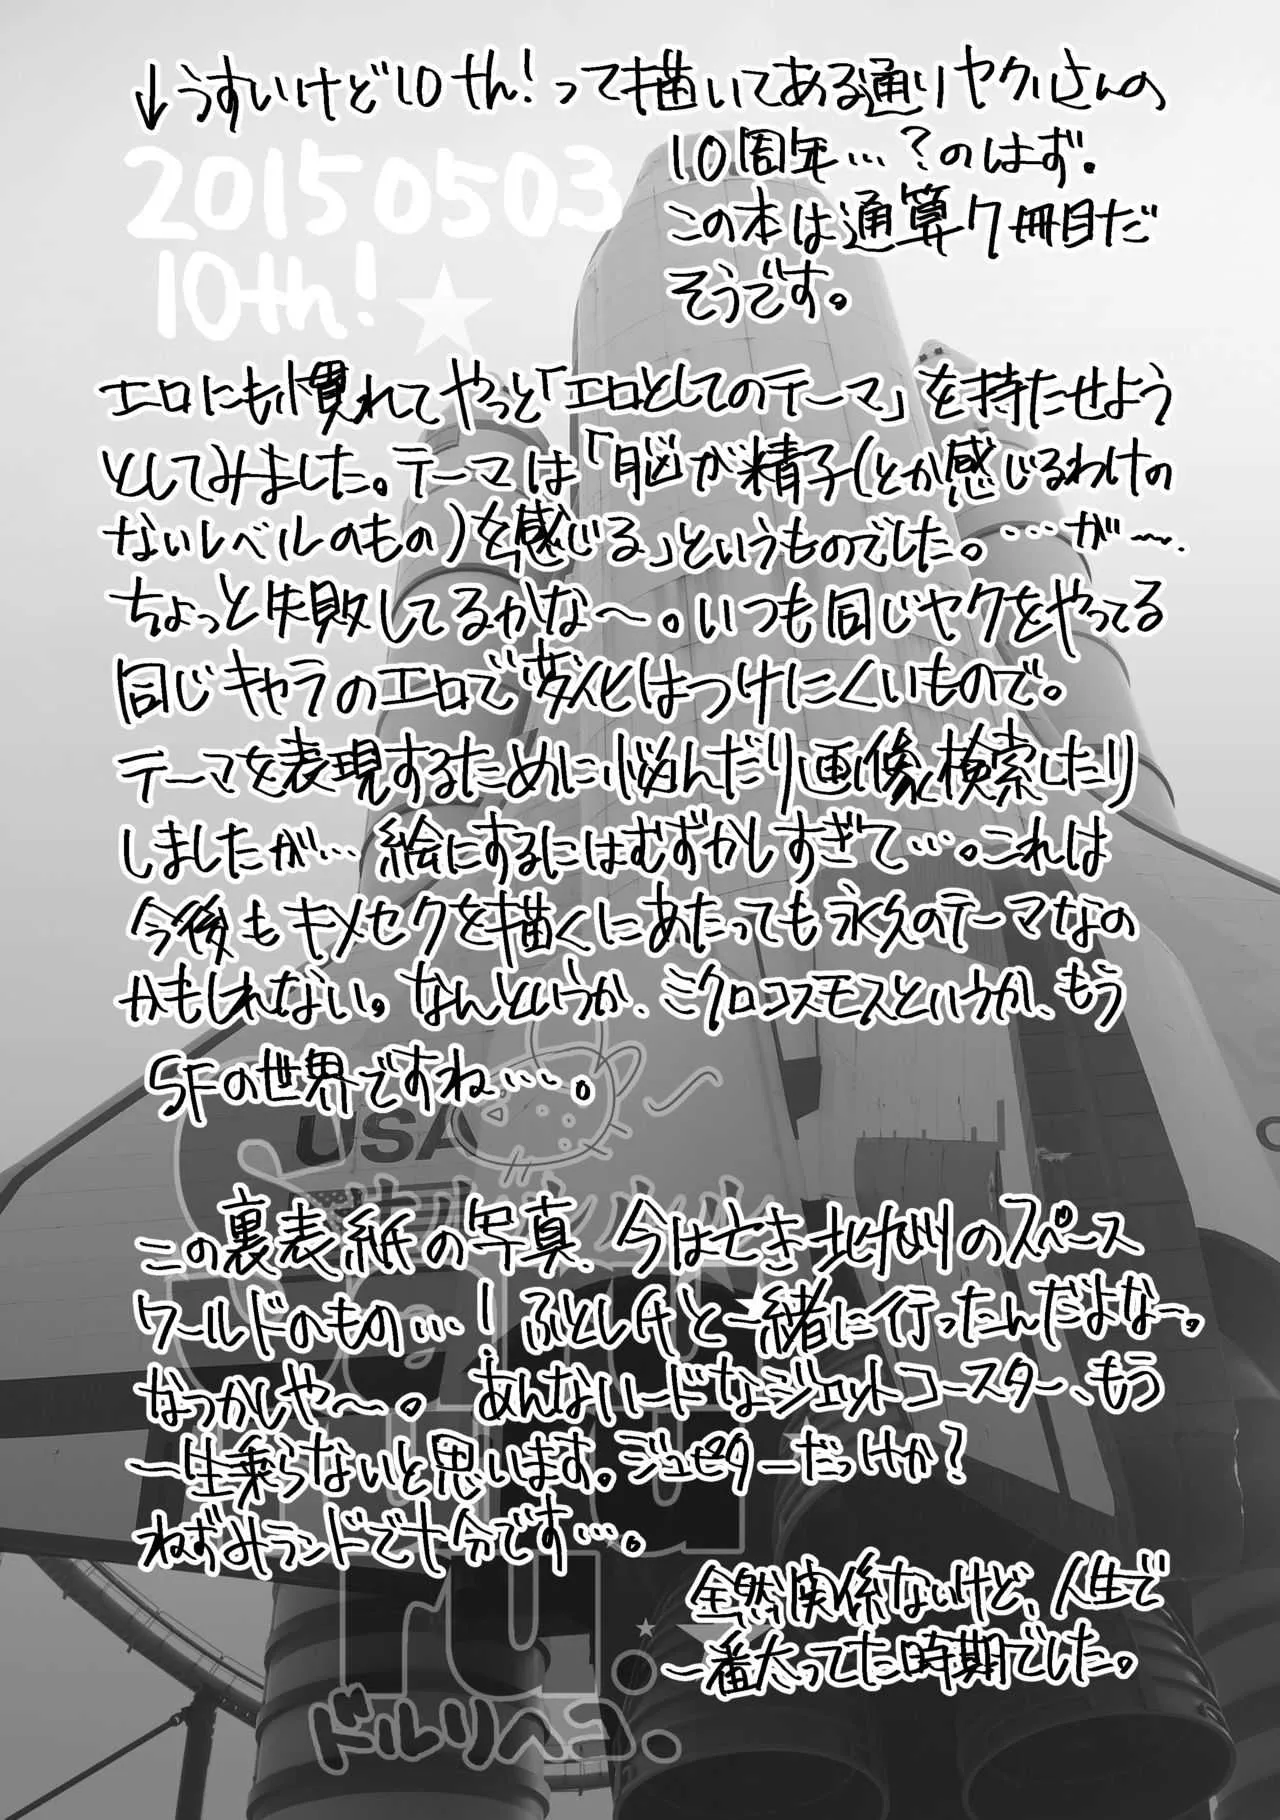 ↓うすいけど10th!って描いてある通りヤクルさんの
10周年…?のはず。
この本は通算7冊目だ
そうです。
20150503
10th!★
エロにも慣れてやっと「エロとしてのテーマ」を持たせよう
としてみました。テーマは「脳が精子(とか感じるわけの
ないレベルのもの)を感じる」というものでした。…が〜、
ちょっと失敗してるかな〜。いつも同じヤクをやってる
同じキャラのエロで変化はつけにくいもので。
テーマを表現するために悩んだり画像検索したり
しましたが…絵にするにはむずかしすぎて…。これは
今後もキメセクを描くにあたっても永久のテーマなの
かもしれない。なんというか、ミクロコスモスというか、もう
SFの世界ですね…。
USA
この裏表紙の写真、今は亡き北九州のスペース
ワールドのもの…!ふとしAと一緒に行ったんだよな〜。
なつかしや〜。あんなハードなジェットコースター、もう
一生乗らないと思います。ジュピターだっけか?
ねずみランドで十分です…。
全然関係ないけど、人生で
一番太ってた時期でした。
ドルリヘコ、